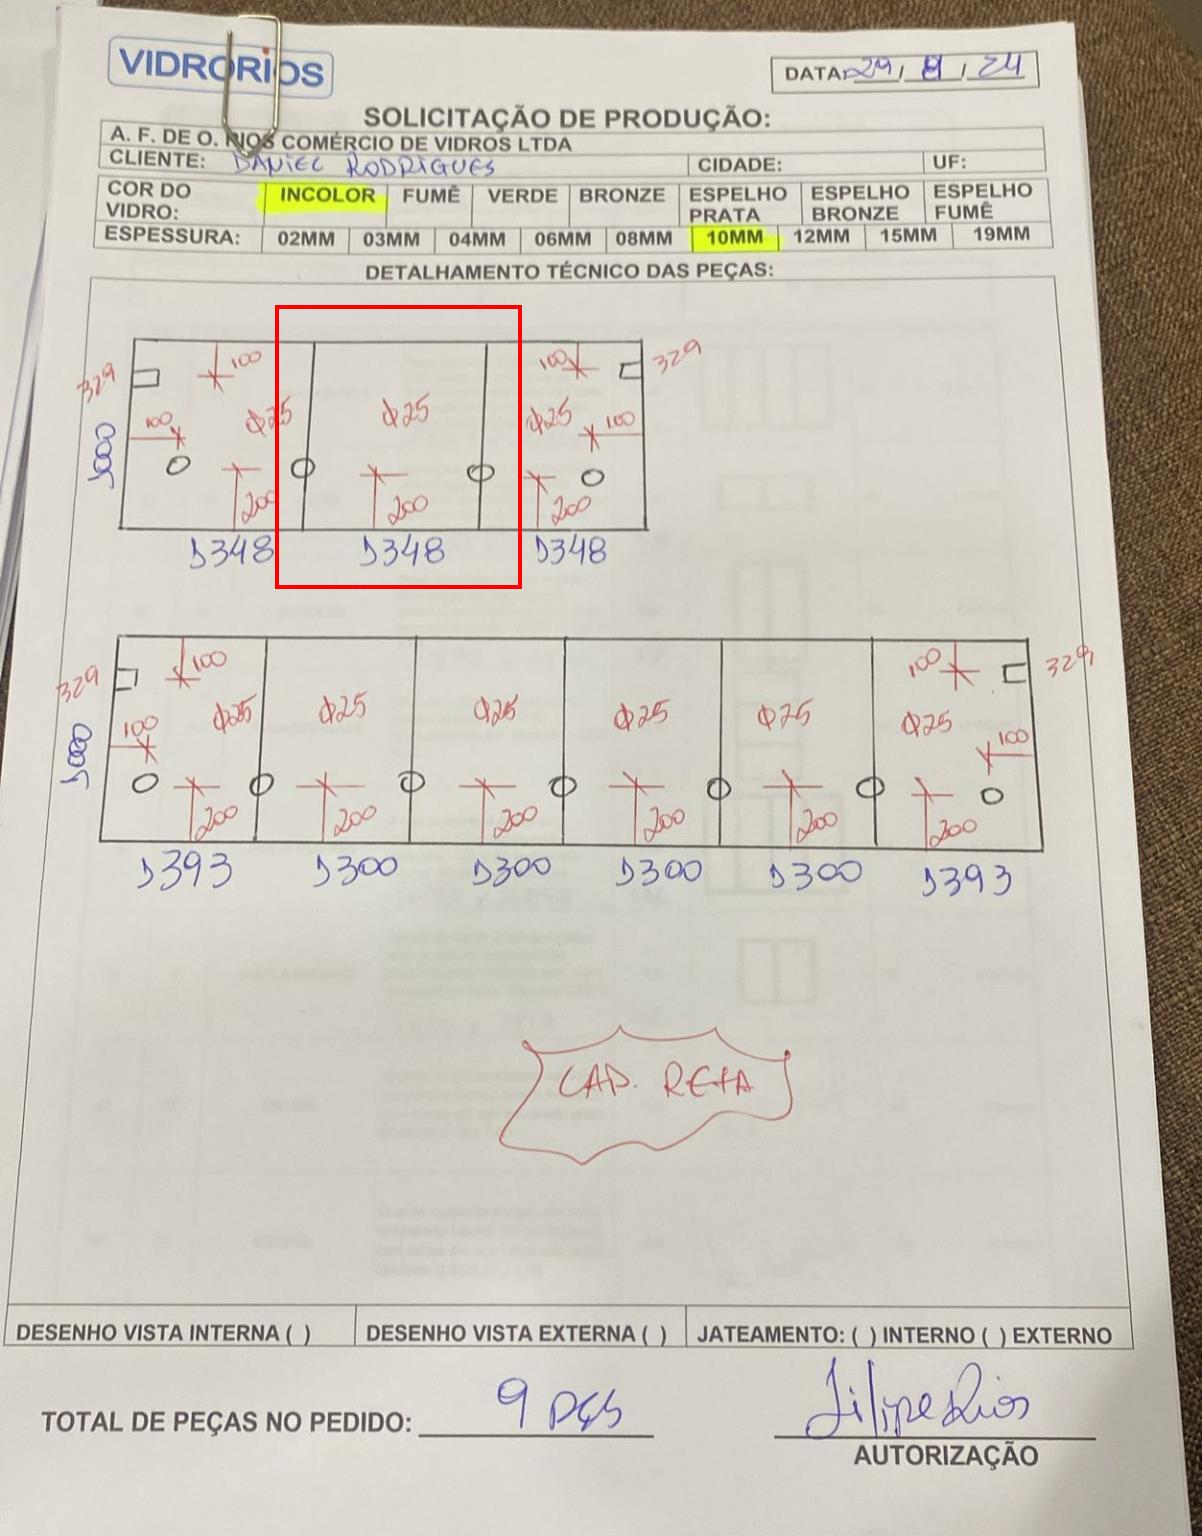 VIDRORIOS
DATA: 29 / 8 / 24
SOLICITAÇÃO DE PRODUÇÃO:
A. F. DE O. RIOS COMÉRCIO DE VIDROS LTDA
CLIENTE: DANIEL RODRIGUES CIDADE: UF:
COR DO VIDRO: INCOLOR FUMÊ VERDE BRONZE ESPELHO PRATA ESPELHO BRONZE ESPELHO FUMÊ
ESPESSURA: 02MM 03MM 04MM 06MM 08MM 10MM 12MM 15MM 19MM
DETALHAMENTO TÉCNICO DAS PEÇAS:
329 100 100 329
100 Φ25 Φ25 Φ25 100
200 200 200
1348 1348 1348
329 100 100 329
100 Φ25 Φ25 Φ25 Φ25 Φ25 Φ25 100
200 200 200 200 200 200
1393 1300 1300 1300 1300 1393
LAP. RETA
DESENHO VISTA INTERNA ( ) DESENHO VISTA EXTERNA ( ) JATEAMENTO: ( ) INTERNO ( ) EXTERNO
TOTAL DE PEÇAS NO PEDIDO: 9 PÇS
Filipe Rios
AUTORIZAÇÃO